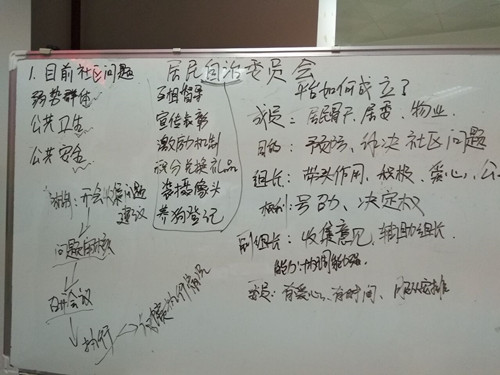 1. 目前社区问题
弱势群体
公共卫生
公共安全
开会收集问题
建议
问题审核
召开会议
执行
居民自治委员会
互相督导
宣传表彰
激励机制
积分兑换礼品
摄像头
养狗登记
平台如何成立?
成员: 居民骨干、居委、物业
目的: 解决社区问题
组长: 带头作用、积极、爱心、公
权利: 号召、决定权
副组长: 收集意见、辅助组长
能力: 协调能力强
委员: 有爱心、有时间、